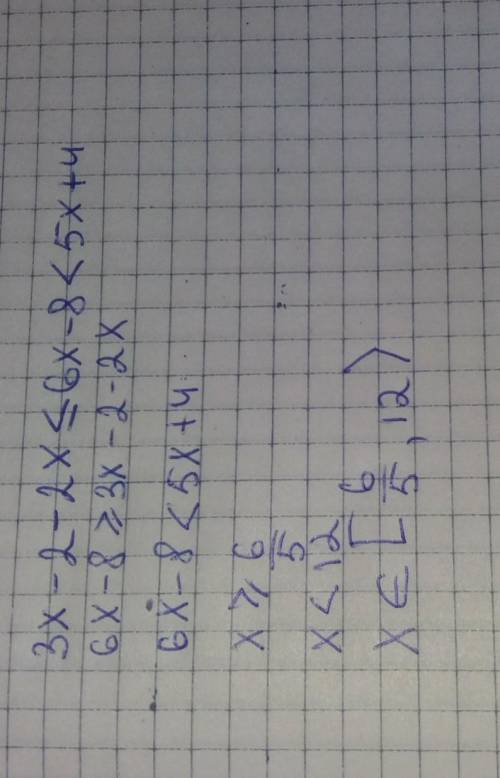 3x-2-2x≤6x-8<5x+4
6x-8⩾3x-2-2x
6x-8<5x+4
x⩾6/5
x<12
x∈[6/5,12⟩